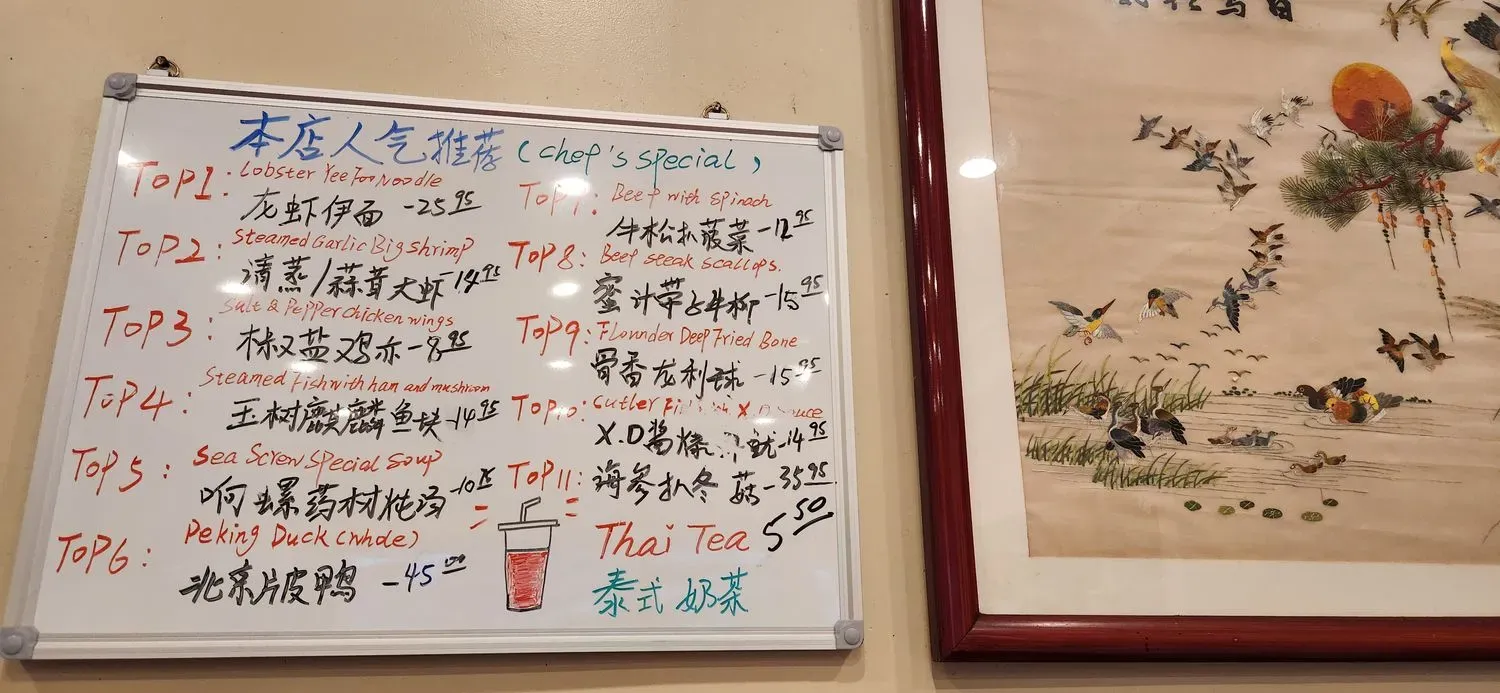 本店人气推荐 (chef's special)
Top1: Lobster Yee Foo Noodle
龙虾伊面 -25.95
Top2: Steamed Garlic Big shrimp
清蒸/蒜茸大虾 14.95
Top3: Salt & Pepper chicken wings
椒盐鸡亦 -8.95
Top4: Steamed Fish with ham and mushroom
玉树麒麟鱼块 -14.95
Top5: Sea Screw special soup
响螺药材炖汤
Top6: Peking Duck (whole)
北京片皮鸭 -45.00
Top7: Beef with spinach
牛松扒菠菜 -12.95
Top8: Beef steak scallops.
蜜汁带子牛柳 -15.95
Top9: Flounder Deep Fried Bone
骨香龙利球 -15.95
Top10: Cutler X.O sauce
X.O酱爆 -14.95
Top11: 海参扒冬菇 -35.95
Thai Tea 5.50
泰式奶茶